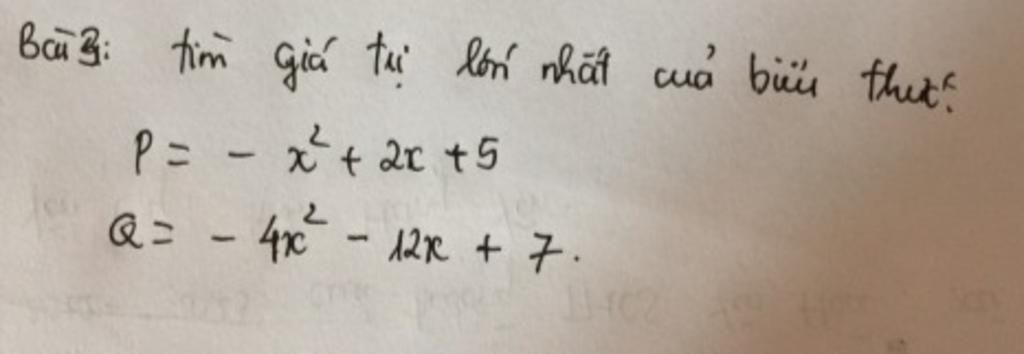 Bài 3: tìm giá trị lớn nhất của biểu thức:
P = - x² + 2x + 5
Q = - 4x² - 12x + 7.